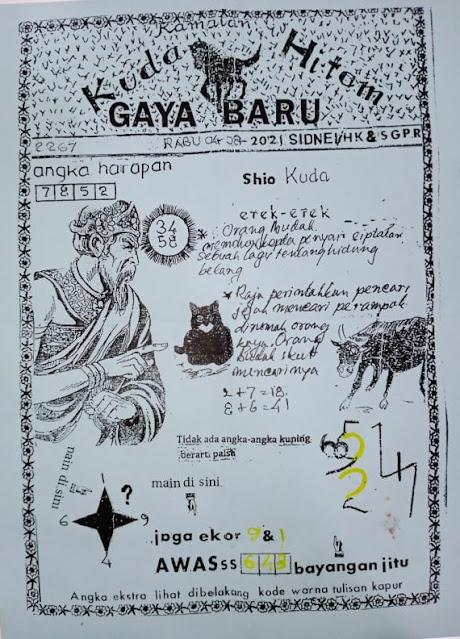 Ramalan
Kuda Hitam
GAYA BARU
2267
RABU 04-08-2021 SIDNEI/HK & SGPR
angka harapan
7852
Shio Kuda
erek-erek
34
58
* Orang Budak
penyair ciptakan
sebuah lagu tentang hidung
belang
* Raja perintahkan pencari
jejak mencari perampok
dirumah orang
kaya. Orang
Budak ikut
mencarinya
2+7=18.
8+6=41
Tidak ada angka-angka kuning
berarti palsu
main di sini
main di sini
?
6
9
4
2
jaga ekor 9 & 1
AWASss 643 bayangan jitu
Angka ekstra lihat dibelakang kode warna tulisan kapur